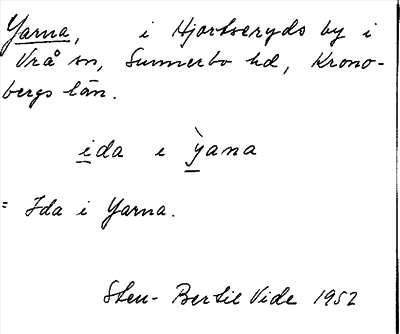 Yarna, i Hjortseryds by i
Vrå sn, Sunnerbo hd, Krono-
bergs län.
ida i ỳ̖ana
= Ida i Yarna.
Sten-Bertil Vide 1952